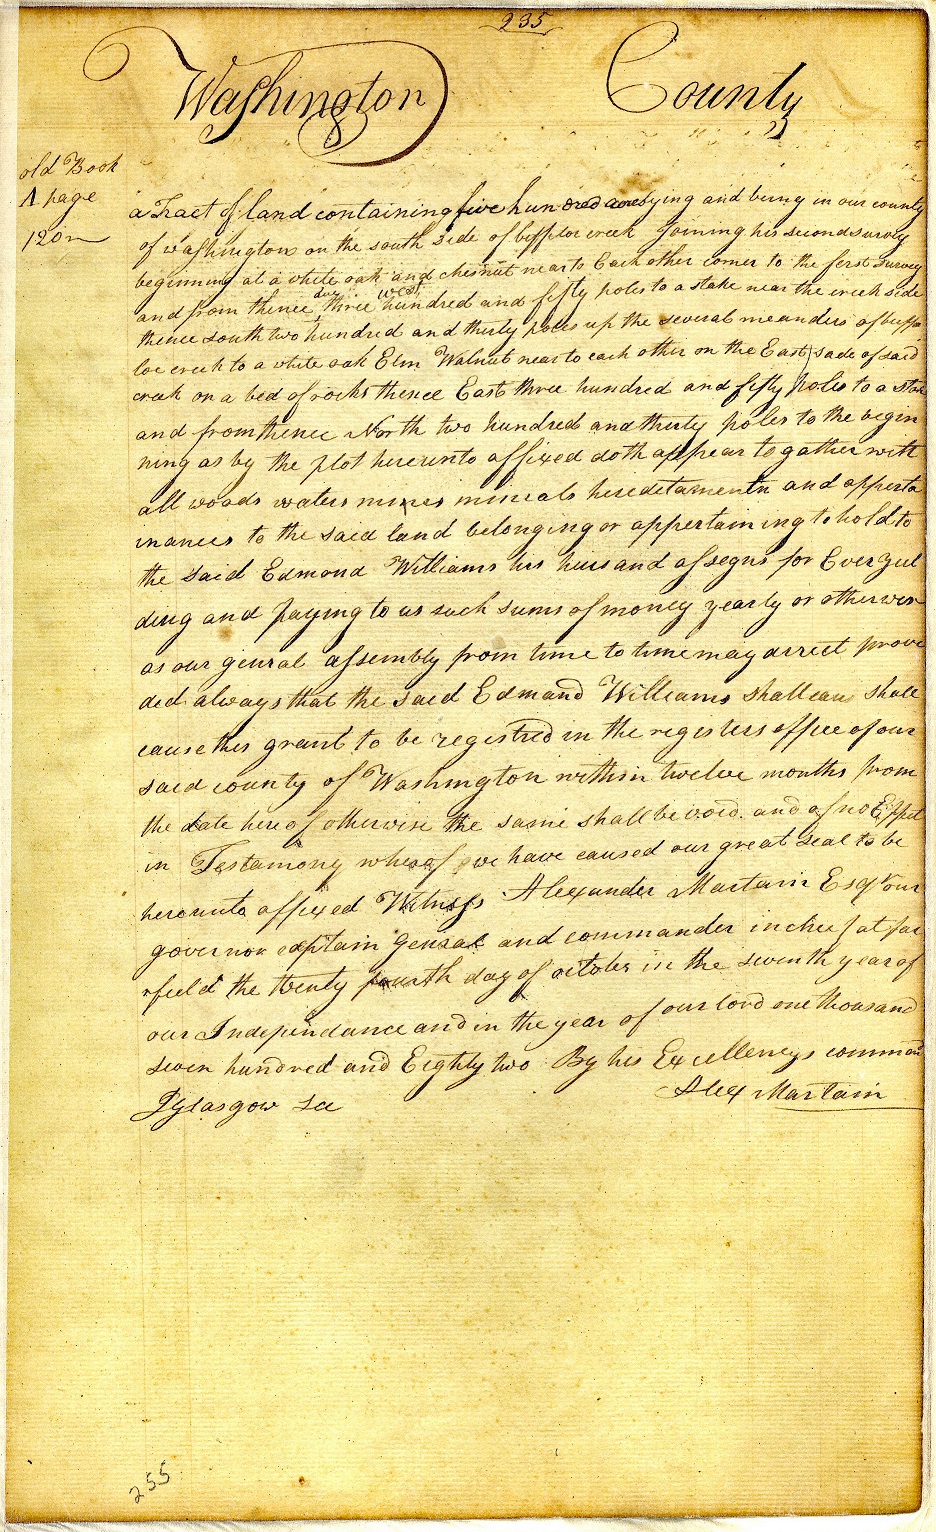 235
Washington County
old Book
A page
120
a Tract of land containing five hundred acres lying and being in our county
of washington on the south side of bufflor creek Joining his second survey
beginning at a white oak and chesnut near to Each other corner to the first survey
and from thence due west three hundred and fifty poles to a stake near the creek side
thence south two hundred and thirty poles up the several meanders of buffa
loe creek to a white oak Elm Walnut near to each other on the East side of said
creek on a bed of rocks thence East three hundred and fifty poles to a stak
and from thence North two hundred and thirty poles to the begin
ning as by the plot hereunto affixed doth appear to gather with
all woods waters mines minerals hereditaments and apperta
inances to the said land belonging or appertaining to hold to
the said Edmond Williams his heirs and assegns for Ever yiel
ding and paying to us such sums of money yearly or otherwise
as our genral assembly from time to time may dirrect provi
ded always that the said Edmand Williams shall cau shall
cause this grant to be registred in the registers office of our
said county of Washington within twelve months from
the date here of otherwise the same shall be void and of no Effect
in Testamony whereof we have caused our great seal to be
hereunto affixed Witness Alexander Martain Esqr our
governor captain genral and commander in cheef at fai
rfield the twenty fourth day of october in the seventh year of
our Independance and in the year of our lord one thousand
seven hundred and Eighty two By his Excellencys comman
J Glasgow Sec Alex Martain
255